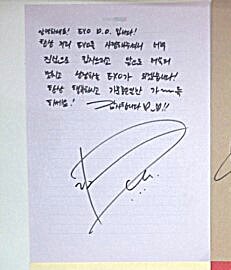 안녕하세요! EXO D.O. 입니다!
항상 저희 EXO를 사랑해주셔서 너무
진심으로 감사드리고 앞으로 더욱더
멋지고 성장하는 EXO가 되겠습니다!
항상 행복하시고 가득
하세요! 감사합니다 D.O!!